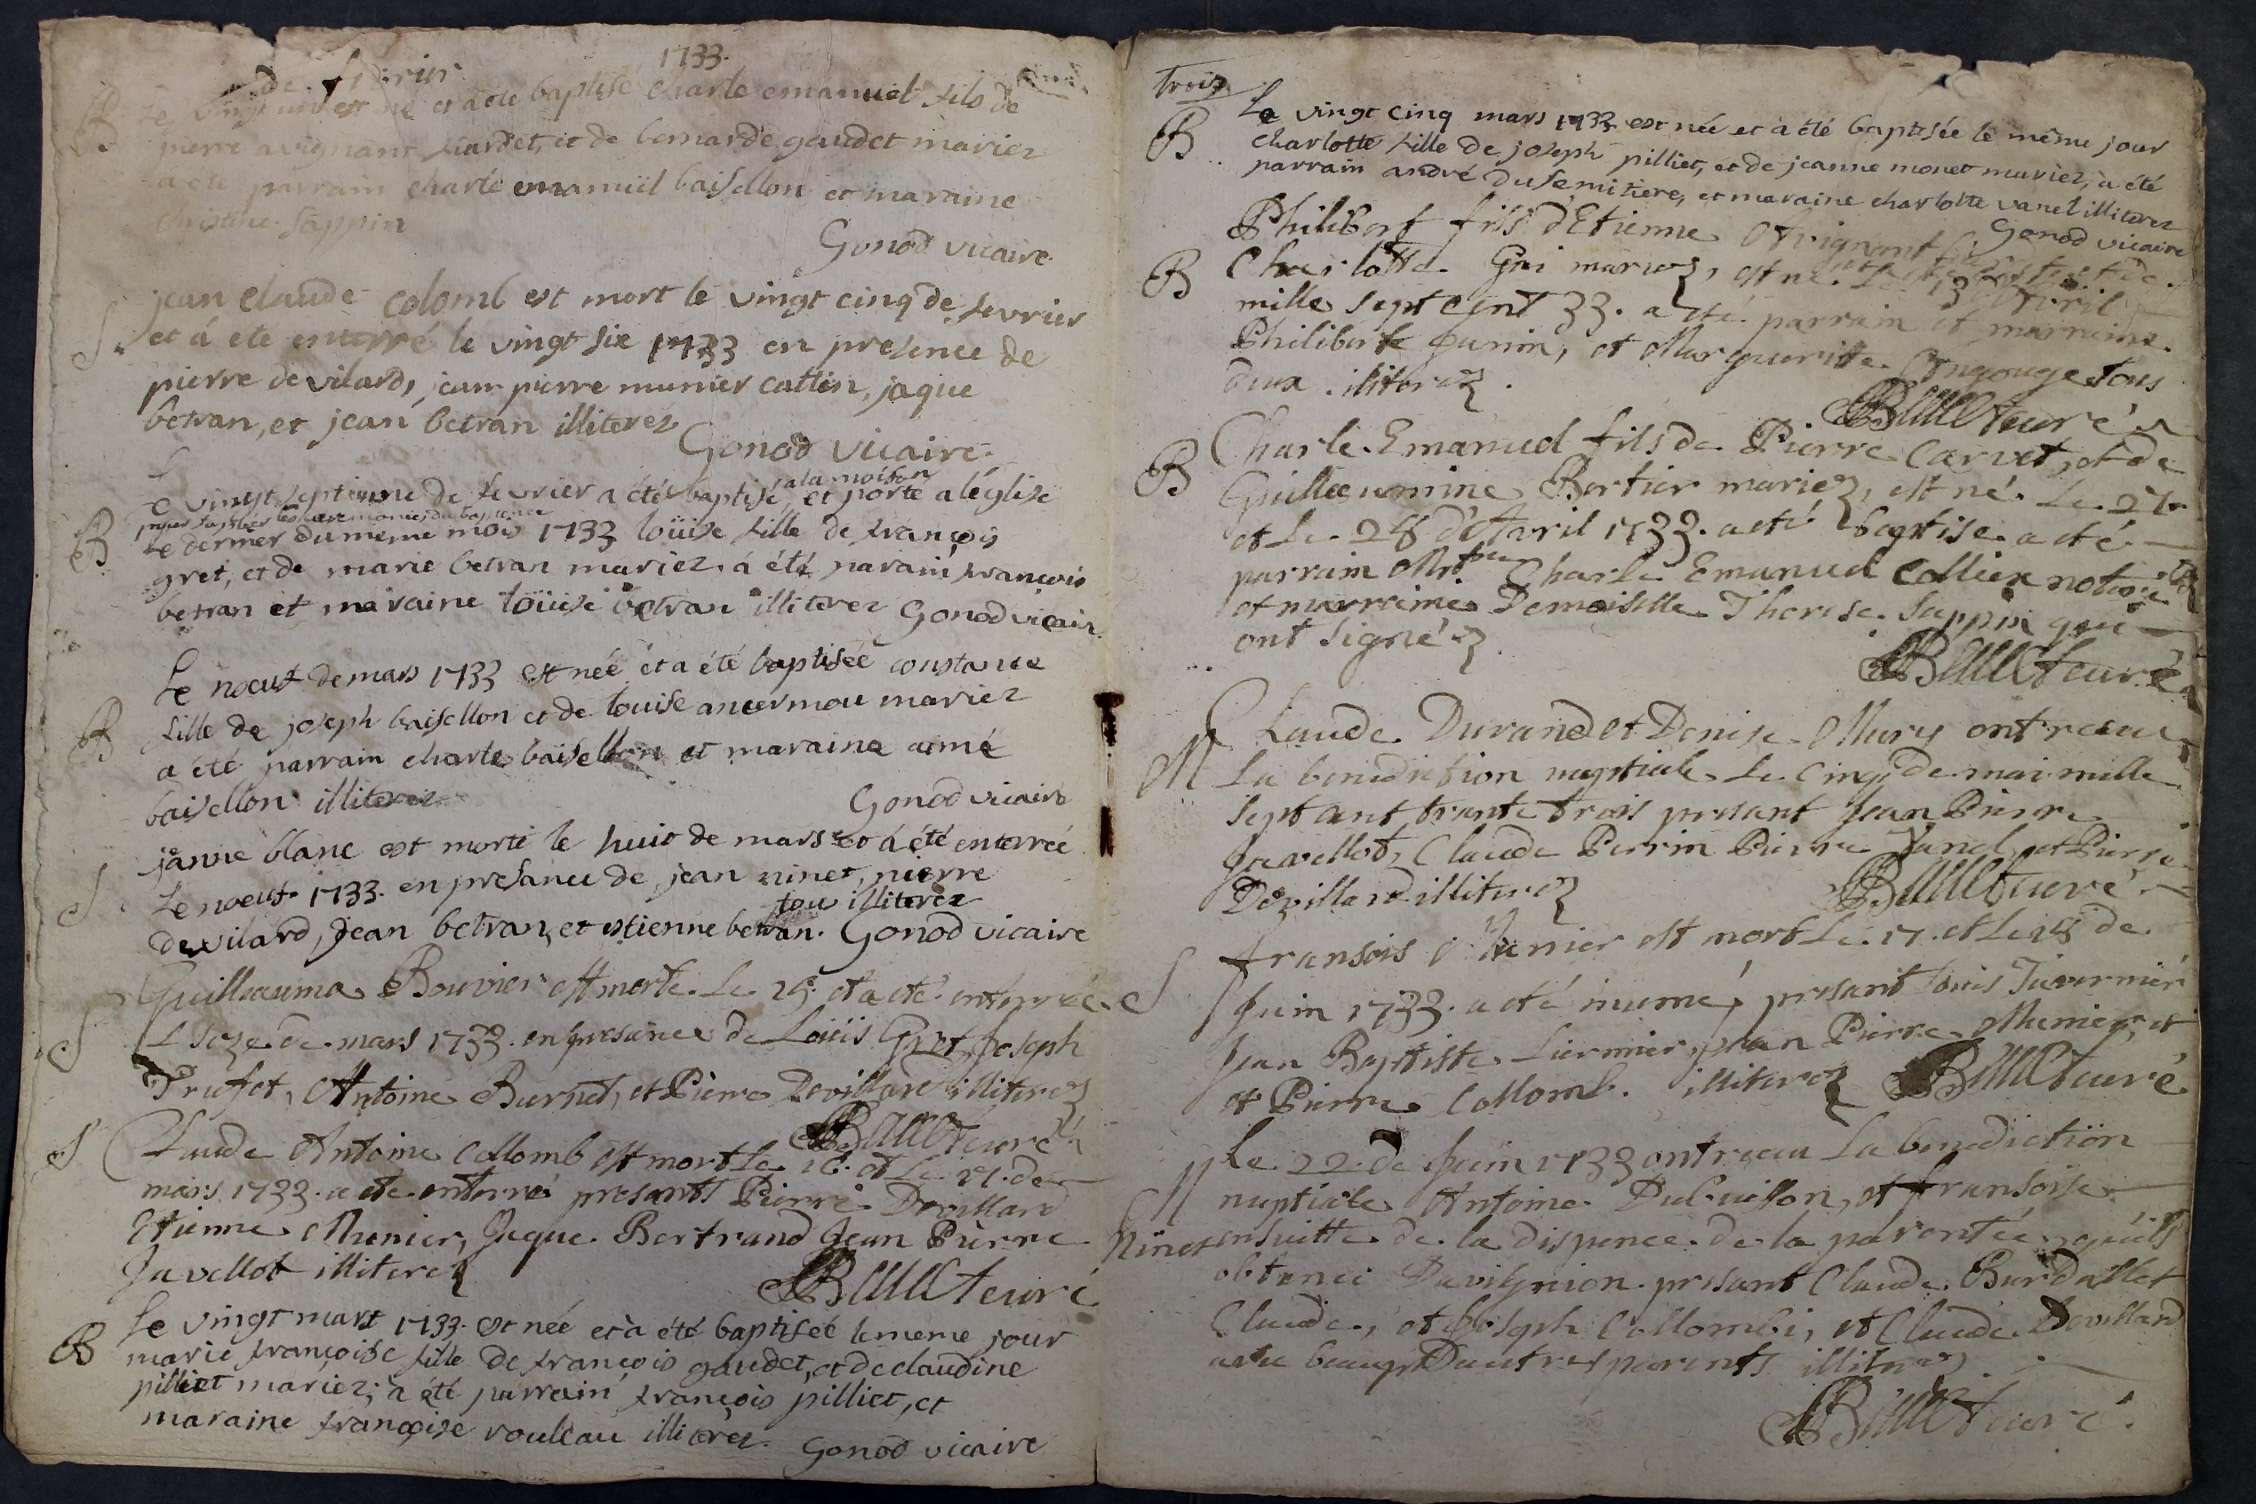 1733.
de fevrier
B Le vingt un est né et a été baptisé charle emanuel fils de
pierre avignant hardet, et de bernarde gaudet mariez
a été parrain charle emanuel baisellon et maraine
christine sappin
Gonod vicaire
jean claude colomb est mort le vingt cinq de fevrier
S. et á eté enterré le vingt six 1733 en presence de
pierre de vilard, jean pierre munier cattin, jaque
betran, et jean betran illiterez
Gonod vicaire
a la maison
Le vingt septieme de fevrier a été baptisé, et porté a léglise
pour suppléer les ceremonies du bapteme
B le dernier du meme mois 1733 loüise fille de françois
gret, et de marie betran mariez. á été parain françois
betran et maraine loüise betran illiterez Gonod vicair
Le noeuf de mars 1733 est née et a été baptisée constance
B fille de joseph baisellon et de louise ancermou mariez
a été parrain charle baisellon et maraine aimé
baisellon illiterez
Gonod vicaire
janne blanc est morte le huit de mars et á été enterrée
S. Le noeuf 1733. en presance de jean ninet, pierre
tou illiterez
devilard, jean betran, et etienne betran. Gonod vicaire
Guillauma Bouvier est morte Le 15. et a eté enterrée
S L seze de mars 1733. en presance de Loüis Gret, Joseph
Trufet, Antoine Burnet, et Pierre Devillard illiterez
curé
S Claude Antoine Collomb est mort Le 16. et Le 17. de
mars 1733. a eté enterré presants Pierre Devillard
Etienne Munier, Jaque Bertrand Jean Pierre
Javellot illiterez
curé
Le vingt mars 1733. est née et á été baptisée le meme jour
B marie françoise fille de françois gaudet, et de claudine
pilliet mariez; a été parrain françois pilliet, et
maraine françoise rouleau illiterez.
Gonod vicaire
trois
Le vingt cinq mars 1733 est née et à été baptisée le même jour
B charlotte fille de joseph pilliet, et de jeanne monet mariez, a été
parrain andré dusemitiere, et maraine charlotte vanel illiterez
Gonod vicaire
Philibert fils d'Etienne Avignant
B Charlotte Gri mariez, est né Avril
mille sept cent 33. a eté parrain et marraine
Philiberte Junin, et Marguerite Angouge tous
deux illiterez.
curé
Charle Emanuel fils de Pierre Carvet, et de
B Guillaumine Bertier mariez, est né Le 27.
et Le 28 d'Avril 1733. a eté baptisé a eté
parrain Mr. Charle Emanuel Collier notaire
et marraine Demoiselle Therese Sappin qui
ont signéz
curé
Claude Durand et Denise Mury ont receu
M La benediction nuptiale Le cinq de mai mille
sept cent trente trois presant Jean Pierre
Javellot, Claude Perrin Pierre Vanel, et Pierre
Devillard illiterez
curé
fransois Munier est mort Le 17. et Le 18 de
S Juin 1733. a eté inumé, presant Louis
Jean Baptiste Liermier, jean Pierre Munier, et
et Pierre Collomb. illiterez
curé
M Le 22. de Juin 1733 ont receu La benediction
nuptiale Antoine Dubuisson, et fransoise
Ninet ensuitte de la dispence de la parentée, qu'ils
obtenu Davignion. presant Claude Burdallet
Claude, et Joseph Collombi, et Claude Devillard
avec beaup Dautres parents illiterez
curé.